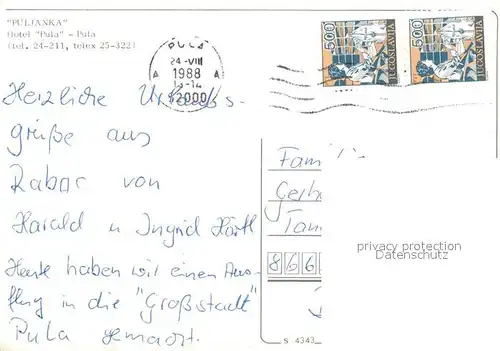 "PULJANKA"
Hotel "Pula" - Pula
(tel. 24-211, telex 25-322)
PULA
24-VIII
1988
52000
500
JUGOSLAVIJA
500
JUGOSLAVIJA
Herzliche Urlaubs-
grüße aus
Rabac von
Harald u Ingrid Härtl
Heute haben wir einen Aus-
flug in die "Großstadt"
Pula gemacht.
Famili
Gerha
Tan
866
privacy protection
Datenschutz
S 4343